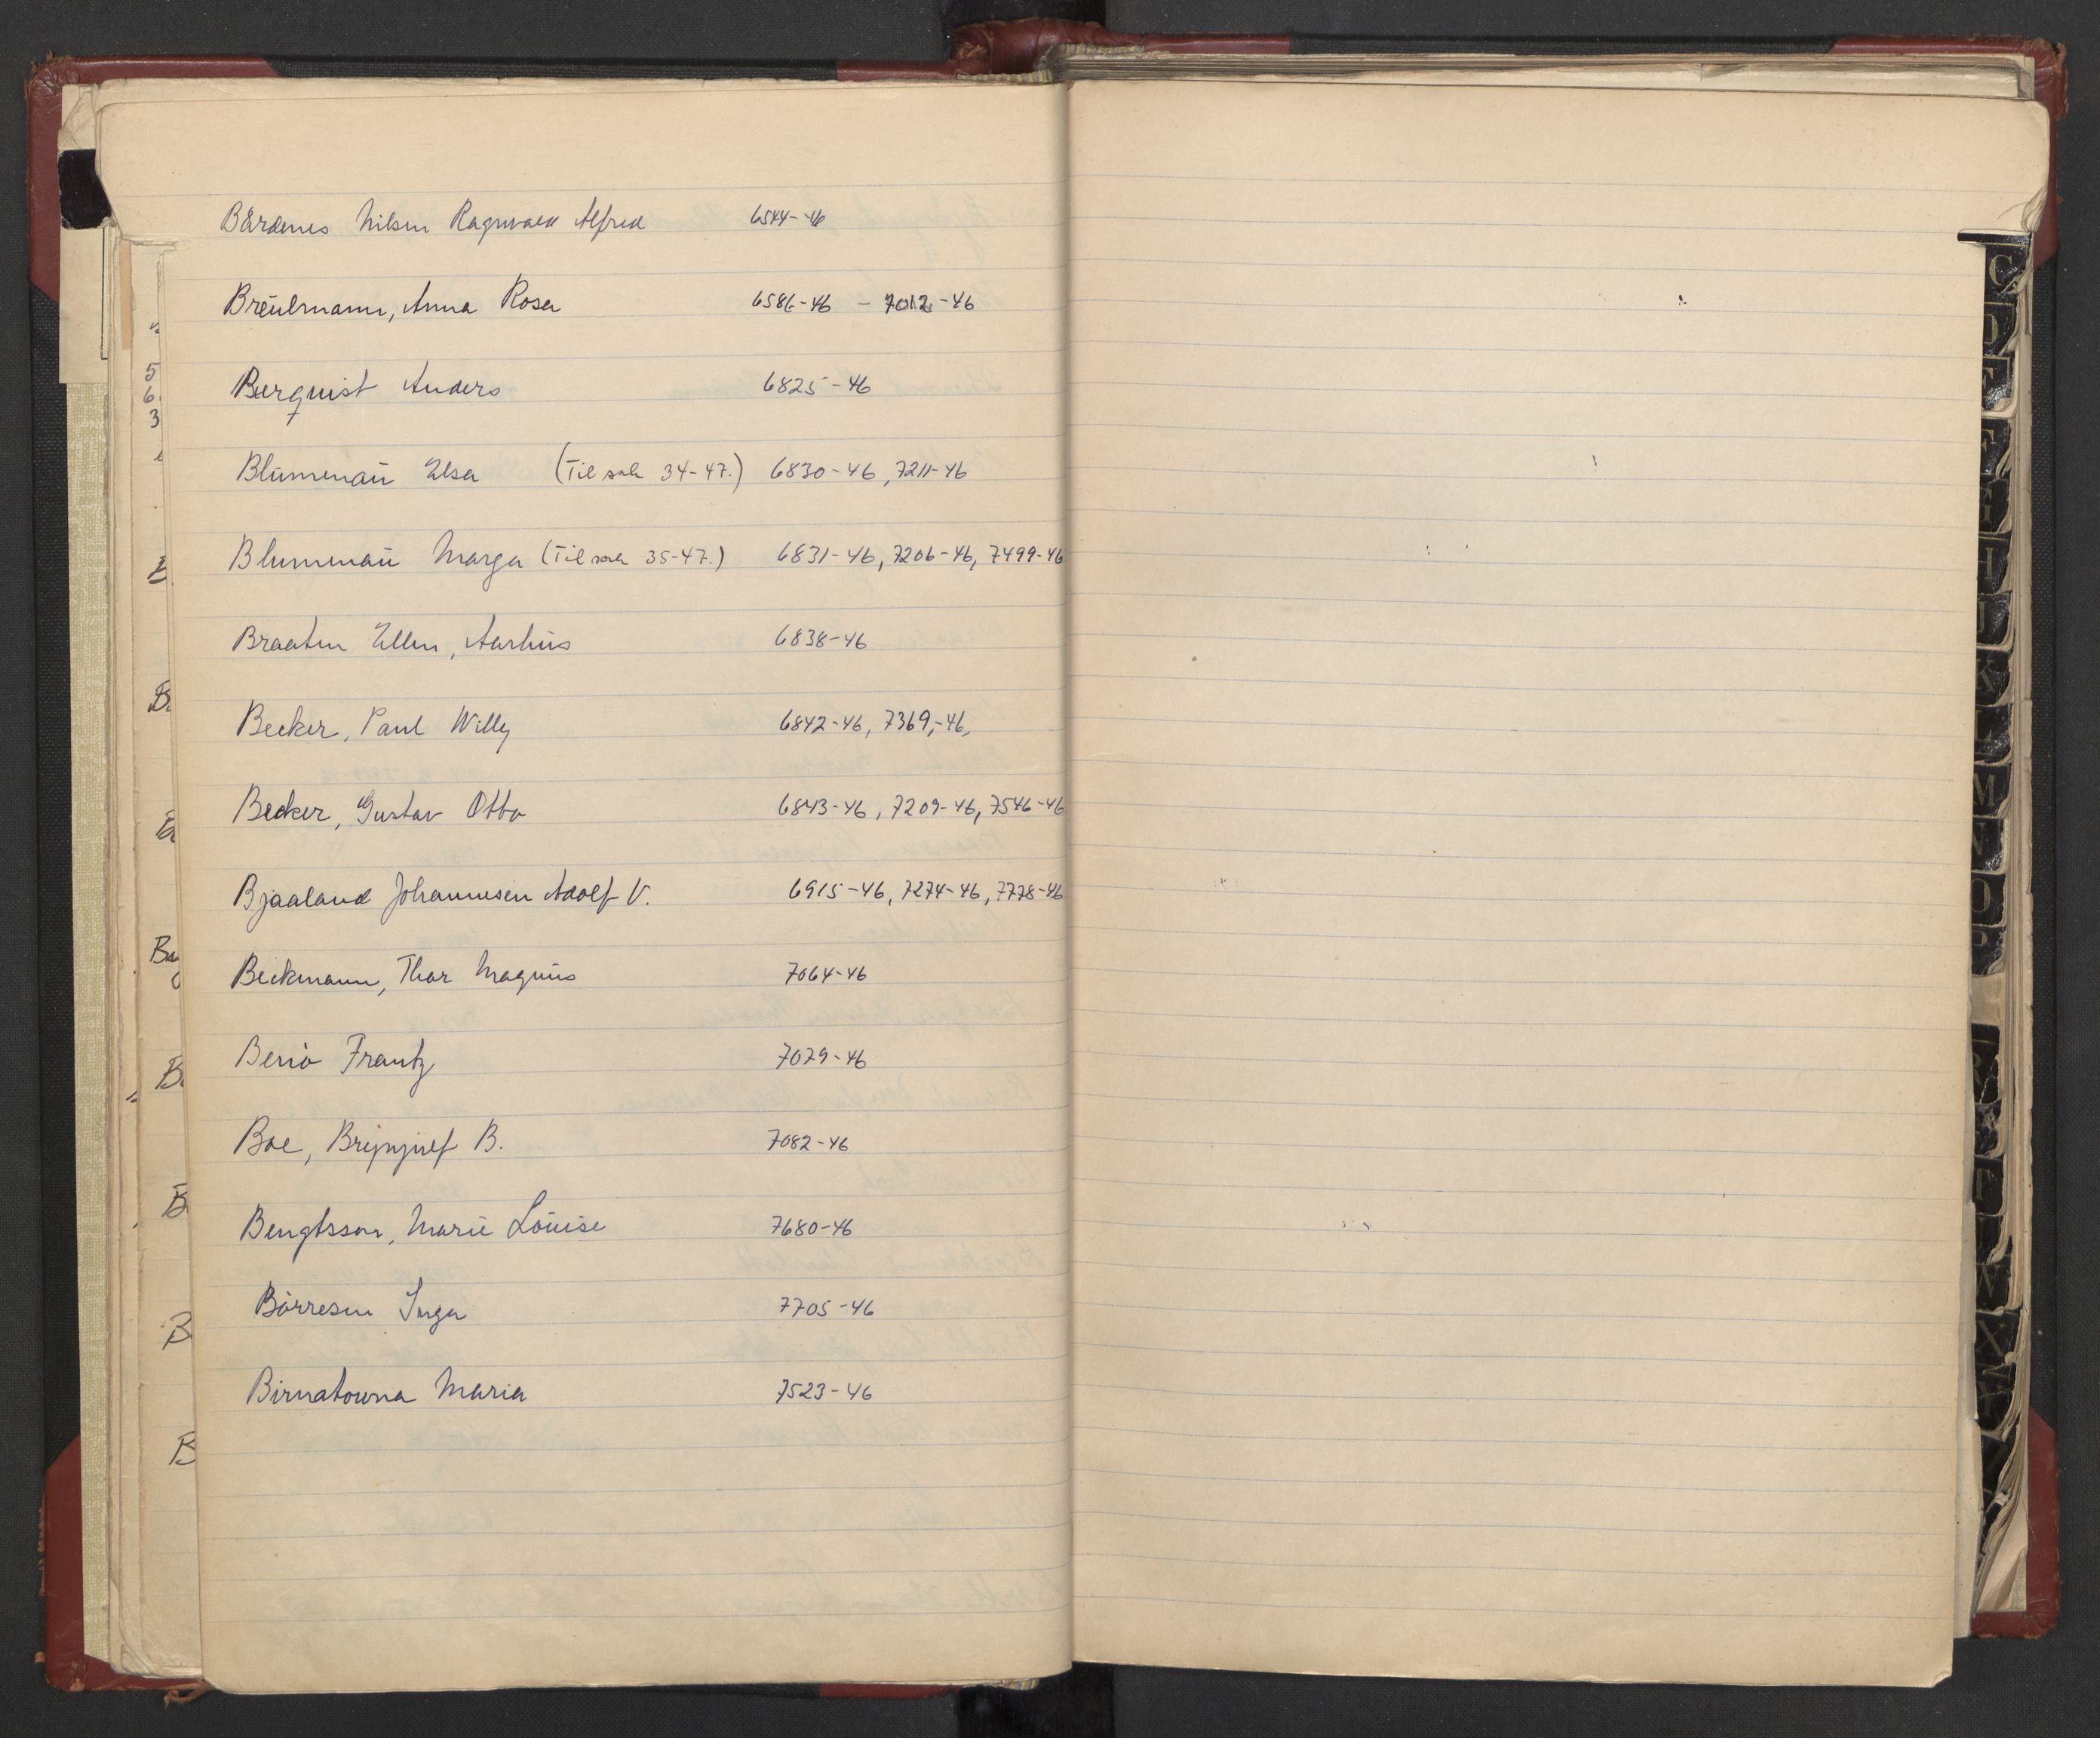 Bårdenes Nilsen Ragnvald Alfred 6544-46
Breülmann, Anna Rosa 6586-46 - 7012-46
Berquist Anders 6825-46
Blumenau Elsa (Til sak 34-47.) 6830-46, 7211-46
Blumenau Marga (Til sak 35-47.) 6831-46, 7206-46, 7499-46
Braaten Ellen, Aarhus 6838-46
Becker, Paul Willy 6842-46, 7369,-46,
Becker, Gustav Otto 6843-46, 7209-46, 7546-46
Bjaaland Johannesen Adolf V. 6915-46, 7274-46, 7778-46
Beckmann, Thor Magnus 7064-46
Berio Frantz 7079-46
Boe, Brynjulf B. 7082-46
Bengtsson, Marie Louise 7680-46
Börresen Inga 7705-46
Birnatowna Maria 7523-46
C
D
E
F
G
H
I
K
L
M
N
O
P
R
S
T
X
5
6
3
B
B
B
B